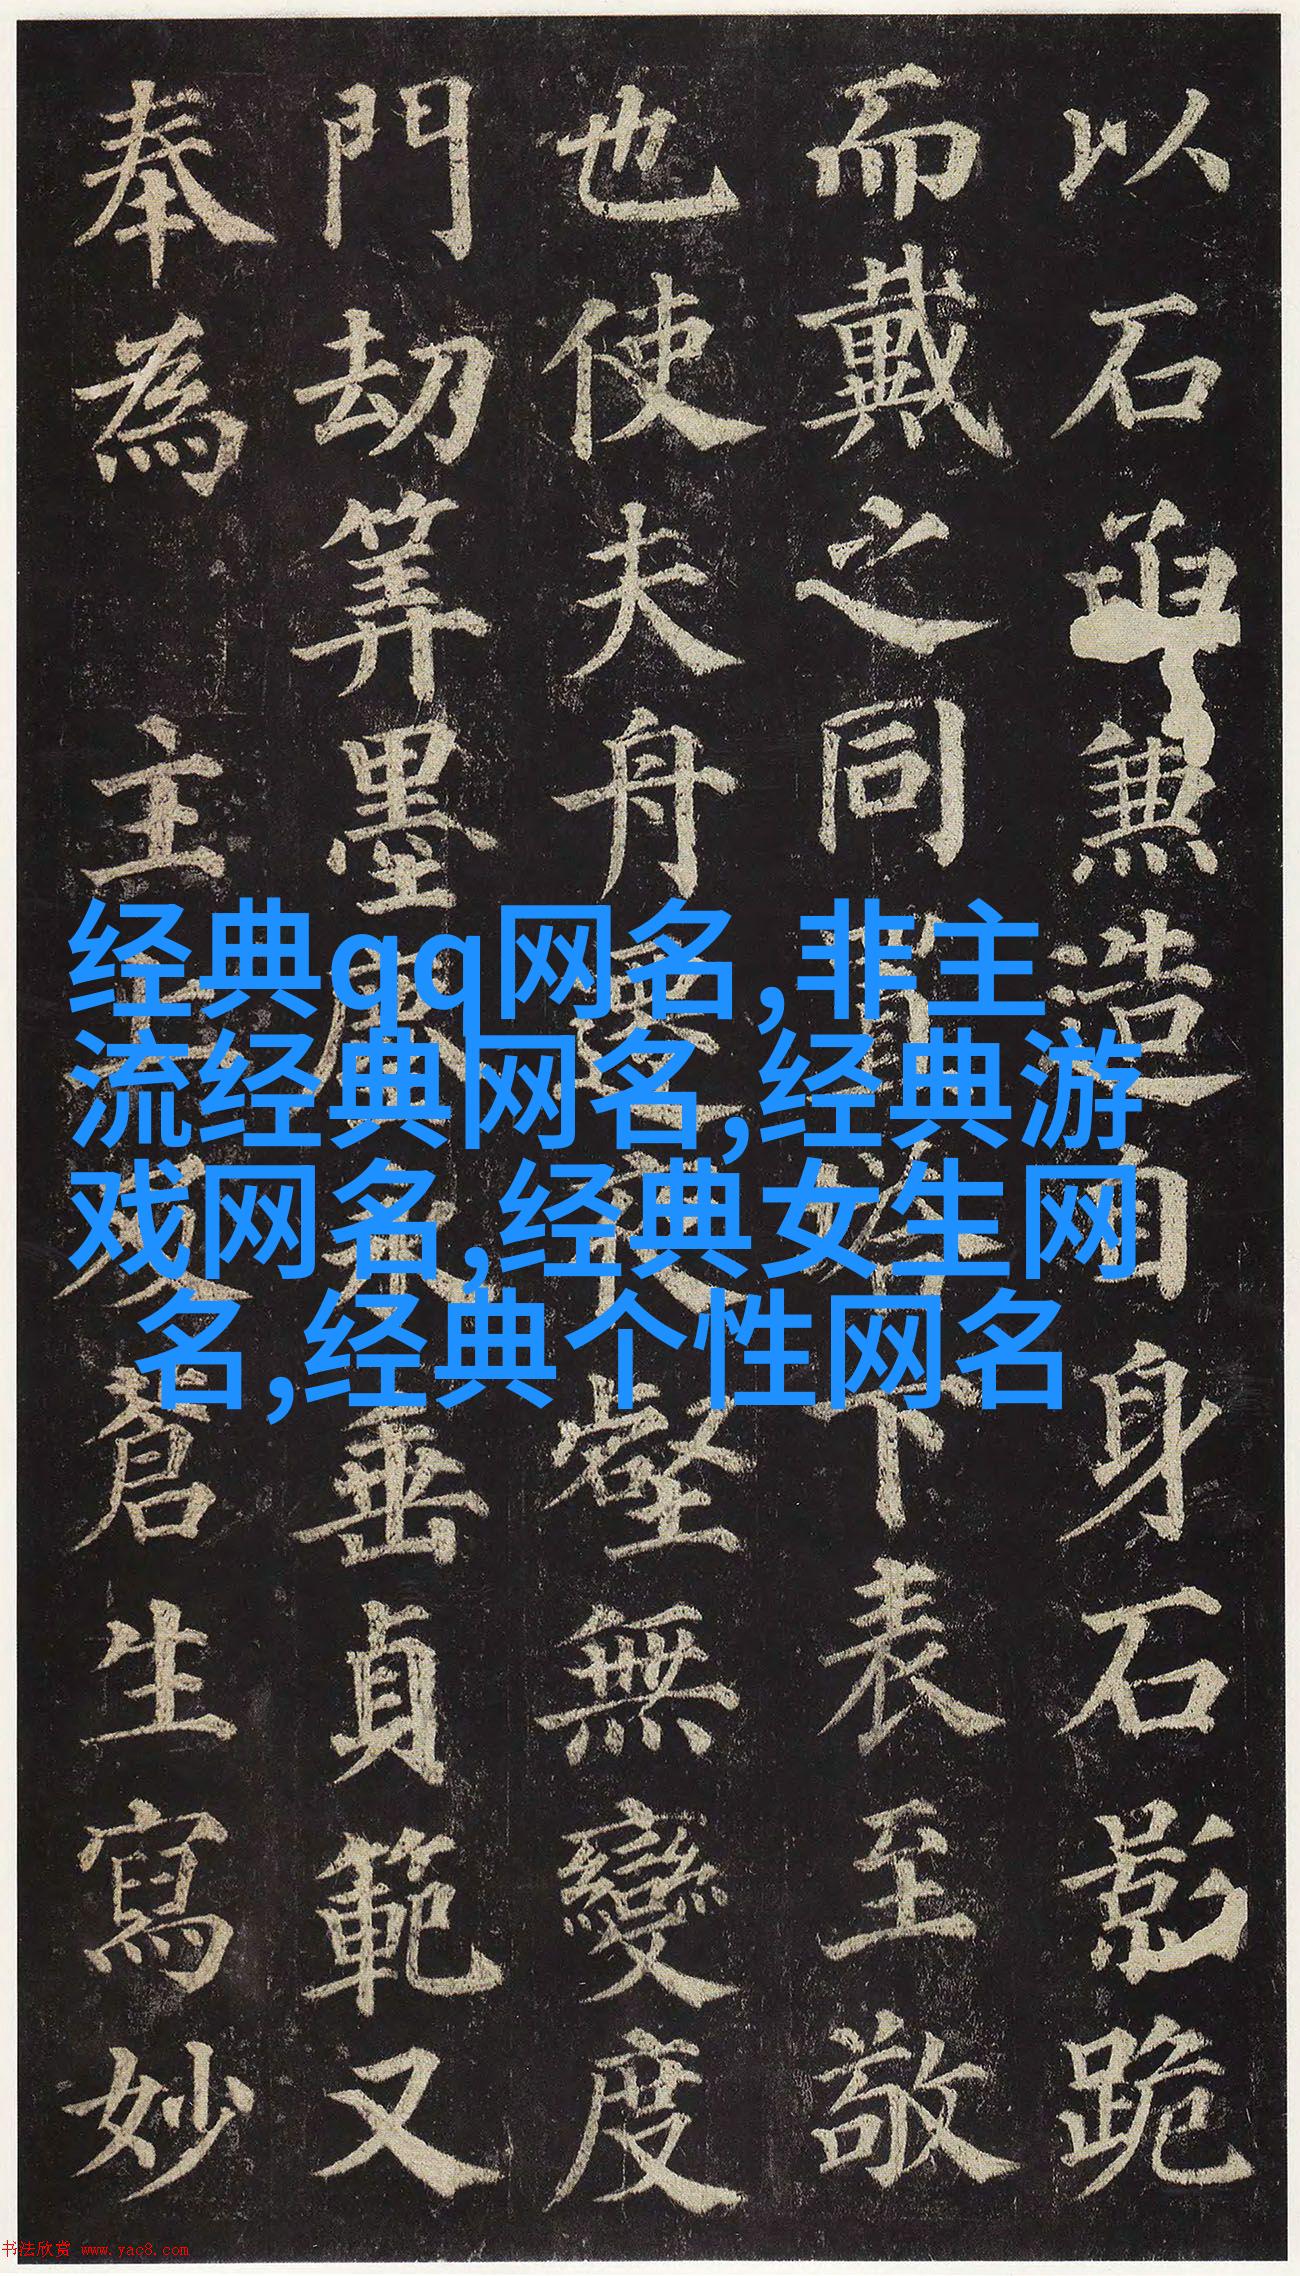 以石函兼造自身石影跪
而戴之同置塔下表至敬
也使夫舟遷夜壑無變度
門劫筭墨塵永垂貞範又
奉為主上及蒼生寫妙
经典qq网名,非主
流经典网名,经典游
戏网名,经典女生网
名,经典个性网名
书法欣赏 www.yac8.com